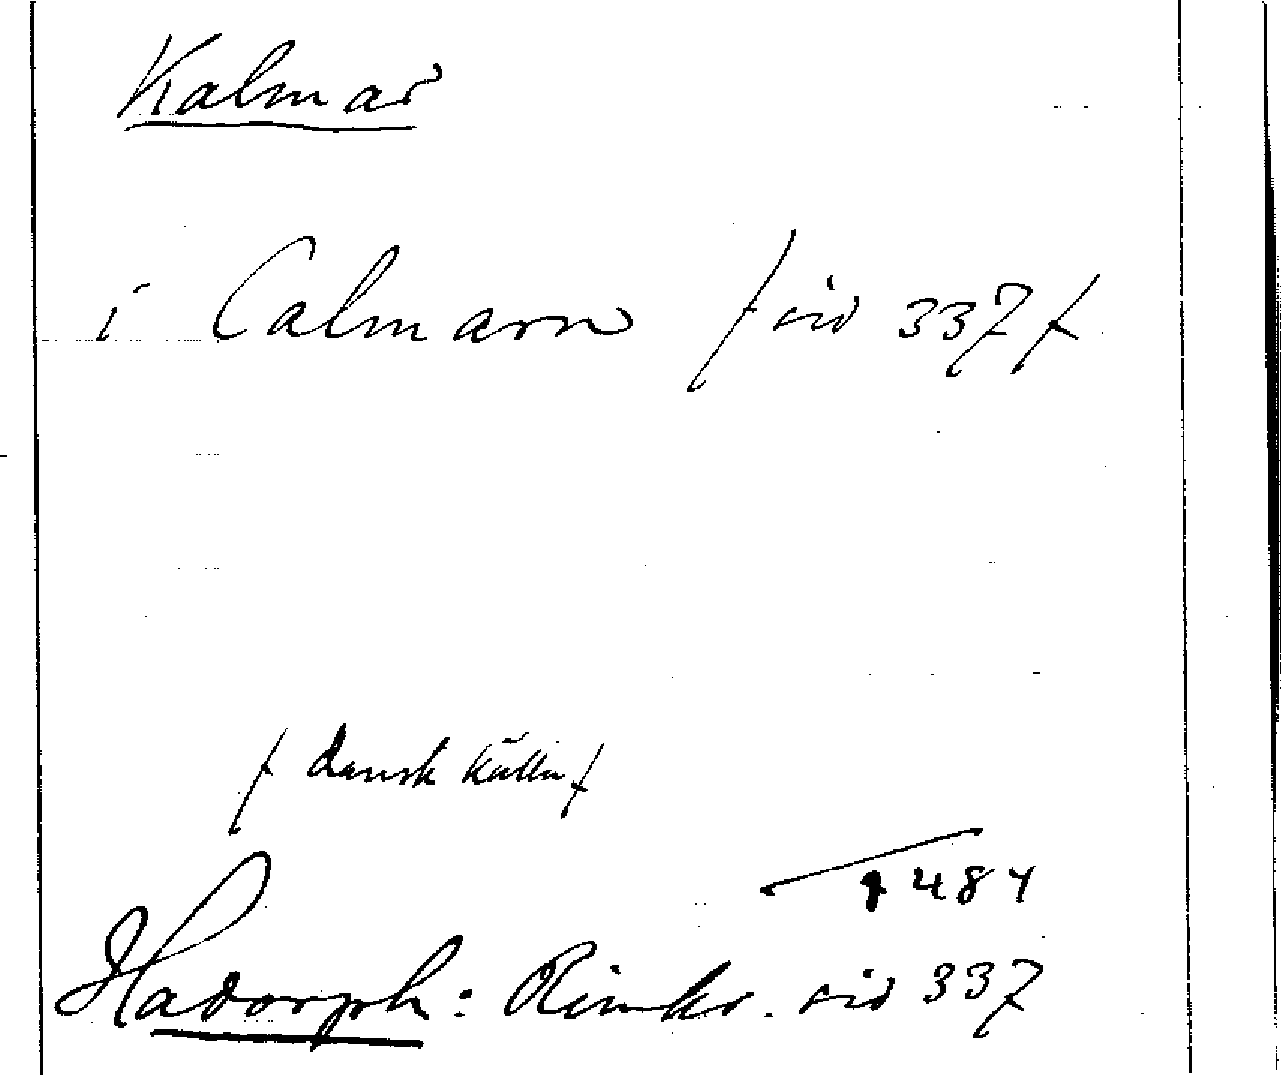 Kalmar
i Calmarn / sid 337 /
/ dansk källa /
1484
Hadorph: Rimkr. sid 337